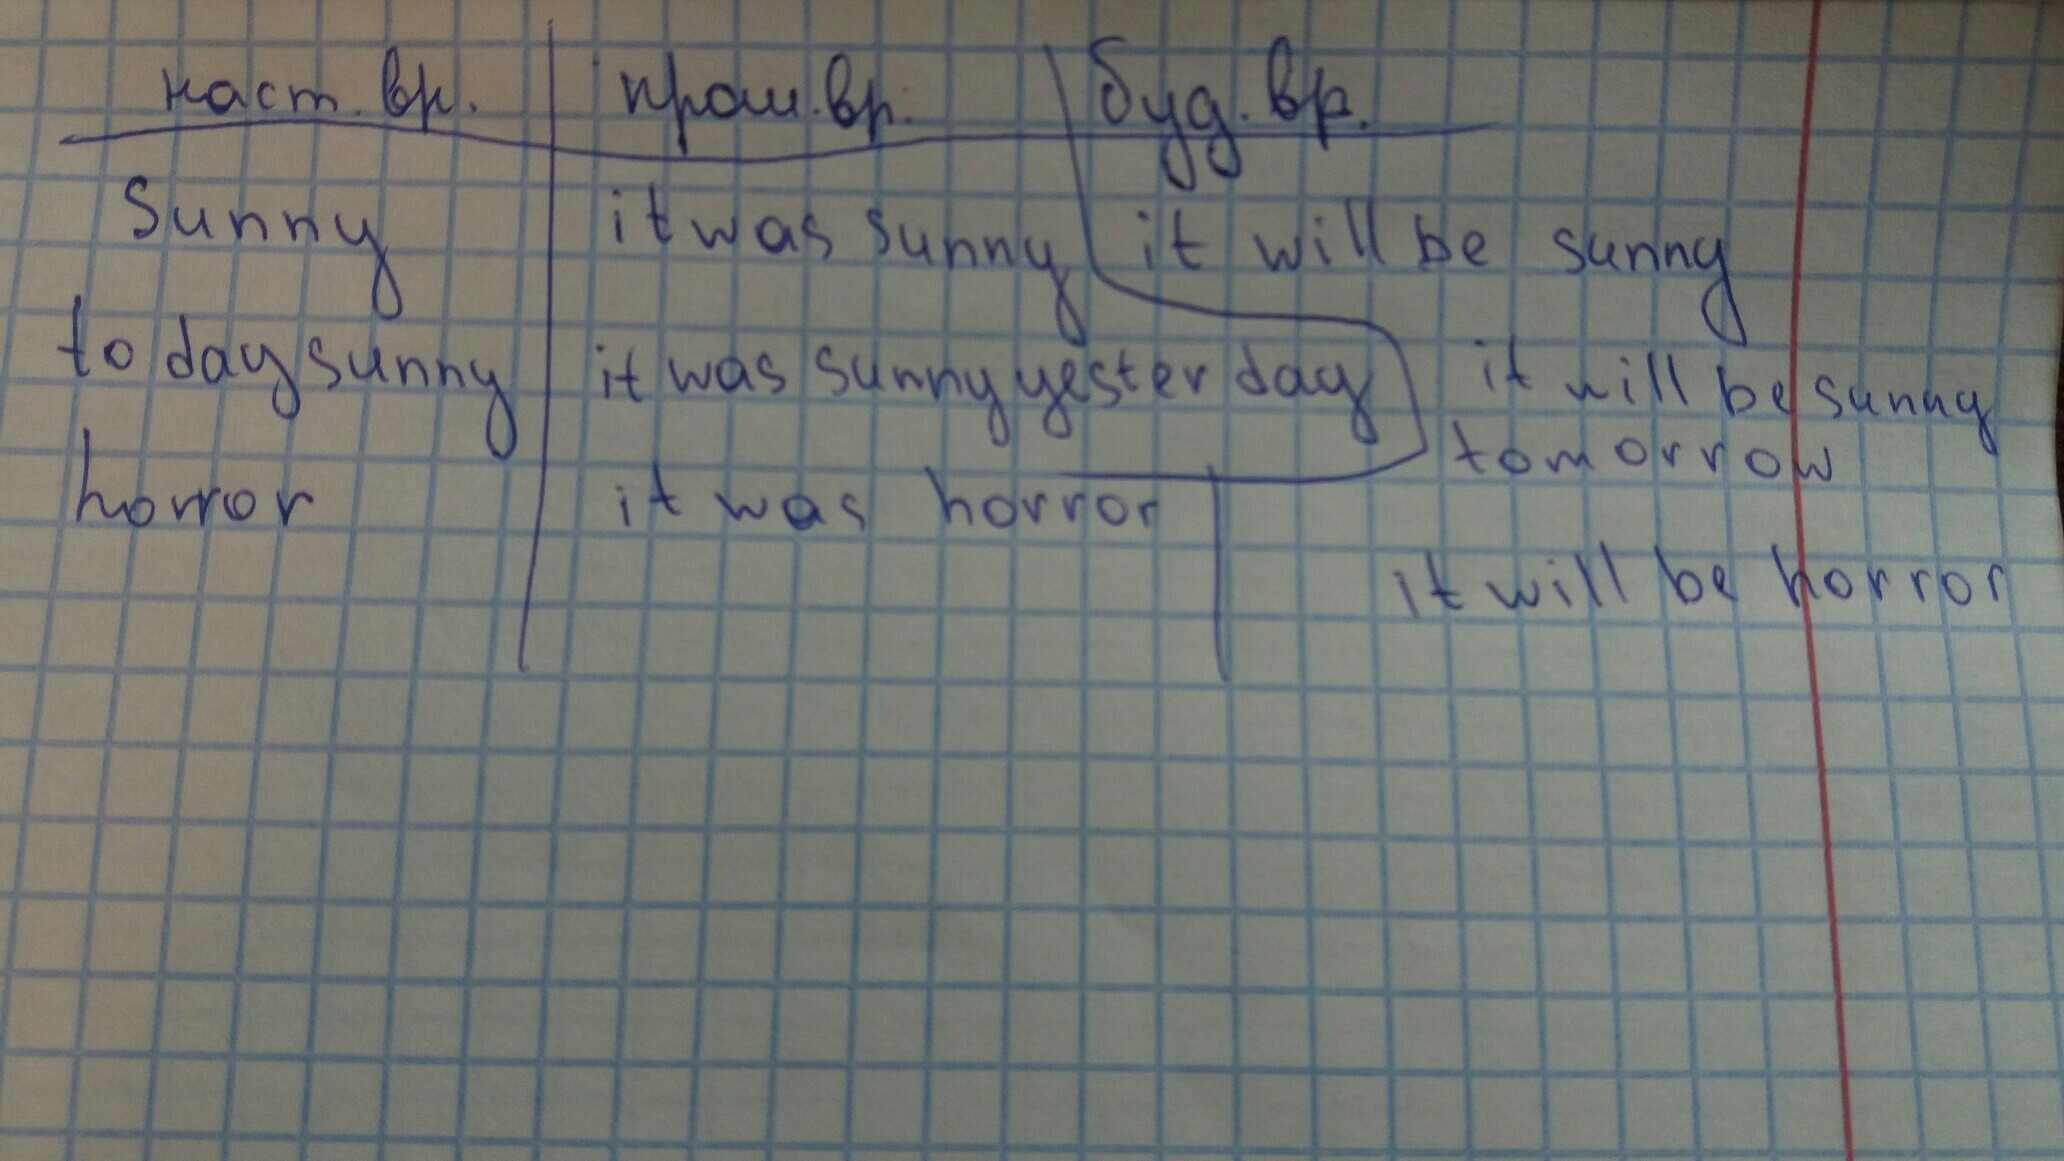 наст. вр. прош. вр. буд. вр.
Sunny it was sunny it will be sunny
to day sunny it was sunny yester day it will be sunny
tomorrow
horror it was horror
it will be horror